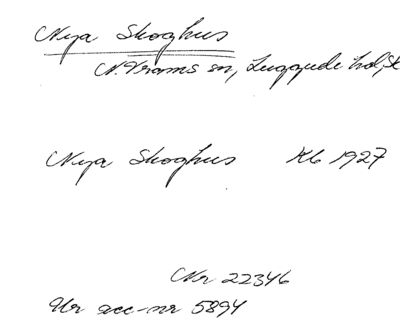 Nya Skoghus
N. Vrams sn, Luggude hd, Sk
Nya Skoghus Kb 1927
Nr 22346
Ur acc-nr 5894